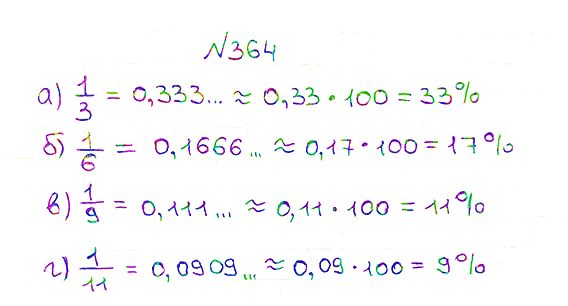 №364
а) 1/3 = 0,333... ≈ 0,33 • 100 = 33%
б) 1/6 = 0,1666... ≈ 0,17 • 100 = 17%
в) 1/9 = 0,111... ≈ 0,11 • 100 = 11%
г) 1/11 = 0,0909... ≈ 0,09 • 100 = 9%